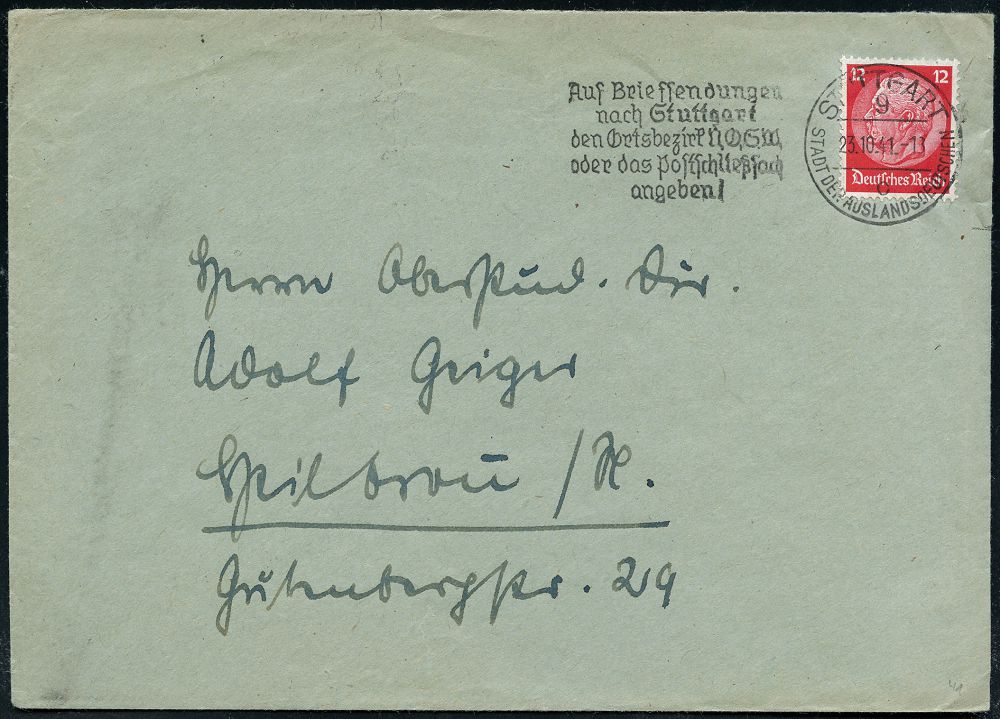 Auf Briefsendungen
nach Stuttgart
den Ortsbezirk N,O,S,W,
oder das Postschließfach
angeben!
12 12
Deutsches Reich
STUTTGART
9
23.10.41.-13
c
STADT DER AUSLANDSDEUTSCHEN
Herrn Oberstud. Dir.
Adolf Geiger
Heilbronn /N.
Gutenbergstr. 29
41